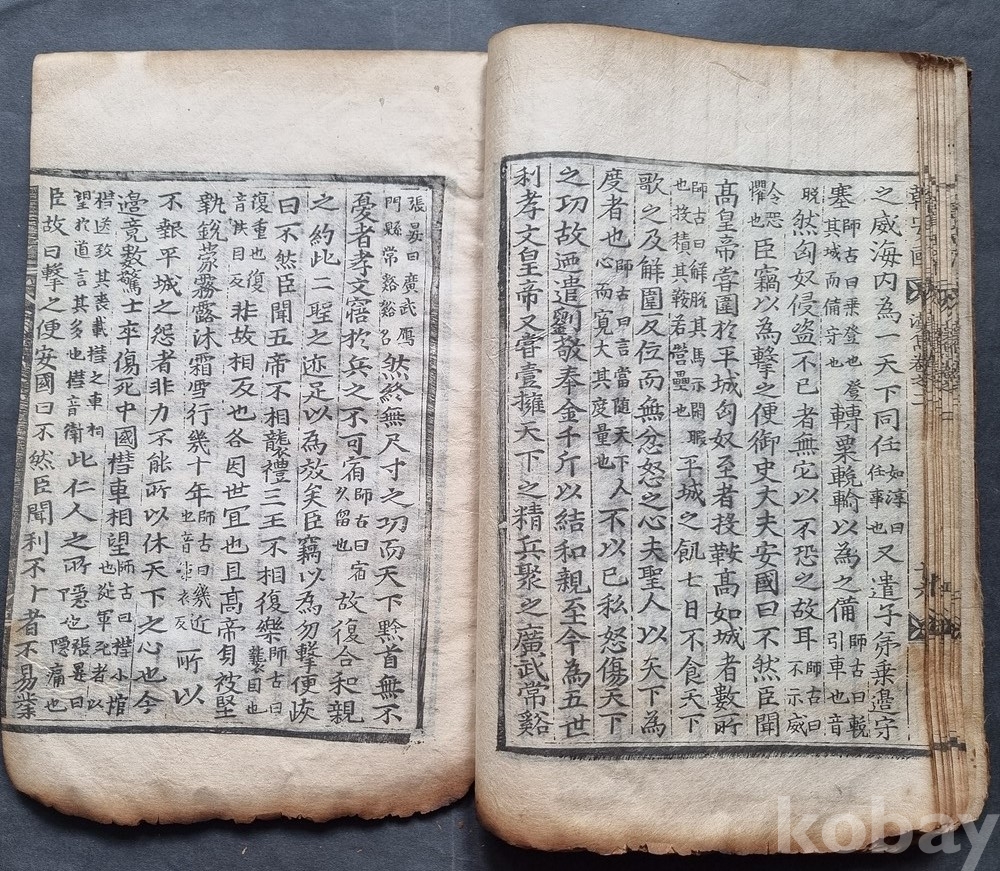 韓安國 漢書卷之二
之威海内為一天下同任如淳曰任事也又遣子弟乗邉守
塞師古曰乗登也登其城而備守也轉粟輓輸以為之備師古曰輓引車也音
晩然匈奴侵盗不已者無它以不恐之故耳師古曰不示威令恐
懼也臣竊以為擊之便御史大夫安國曰不然臣聞
髙皇帝甞圍於平城匈奴至者投鞍髙如城者數所
師古曰解脫其馬示閑暇也投積其鞍若營壘也平城之飢七日不食天下
歌之及解圍反位而無忿怒之心夫聖人以天下為
度者也師古曰言當隨天下人心而寬大其度量也不以已私怒傷天下
之功故廼遣劉敬奉金千斤以結和親至今為五世
利孝文皇帝又甞壹擁天下之精兵聚之廣武常谿
張晏曰廣武鴈門縣常谿谿名然終無尺寸之功而天下黔首無不
憂者孝文寤於兵之不可宿師古曰宿久留也故復合和親
之約此二聖之迹足以為放矣臣竊以為勿擊便恢
曰不然臣聞五帝不相襲禮三王不相復樂師古曰襲因也
復重也復音扶目反非故相反也各因世冝也且髙帝身被堅
執銳蒙霧露沐霜雪行幾十年師古曰幾近也音衣反所以
不報平城之怨者非力不能所以休天下之心也今
邉竟數驚士卒傷死中國槥車相望師古曰槥小棺也從軍死者以
槥送致其喪載槥之車相望於道言其多也槥音衛此仁人之所隱也張晏曰隱痛也
臣故曰擊之便安國曰不然臣聞利不十者不易業
kobay